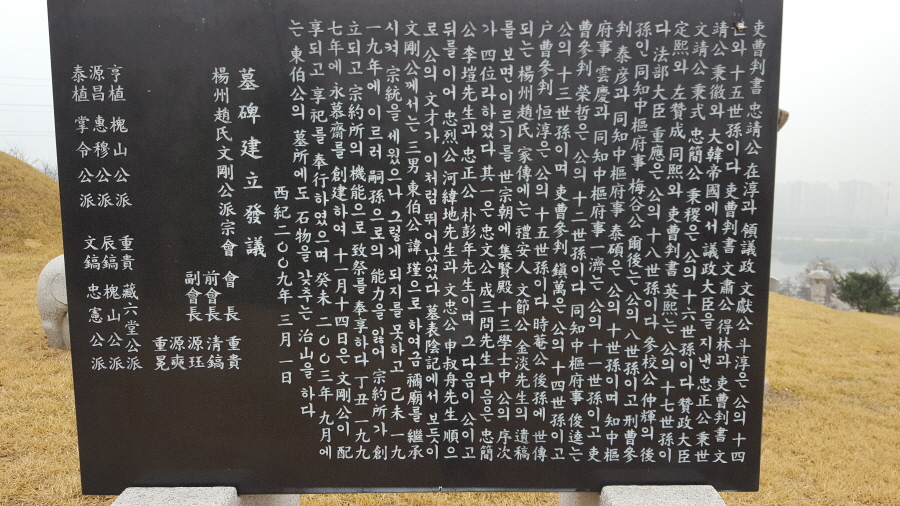 吏曹判書 忠靖公 在淳과 領議政 文獻公 斗淳은 公의 十四
世와 十五世孫이다 吏曹判書 文肅公 得林과 吏曹判書 文
請公 秉徽와 大韓帝國에서 議政大臣을 지낸 忠正公 秉世
文請公 秉式 忠簡公 秉稷은 公의 十六世孫이다 贊政大臣
定熙와 左贊成 同熙와 吏曹判書 英熙는 公의 十七世孫이
다 法部大臣 重應은 公의 十八世孫이다 參校公 仲輝의 後
孫인 同知中樞府事 梅谷公 爾後는 公의 八世孫이고 刑曹參
判 泰彦과 同知中樞府事 泰碩은 公의 十世孫이며 知中樞
府事 雲慶과 同知中樞府事 一濟는 公의 十一世孫이고 吏
曹參判 榮哲은 公의 十二世孫이다 同知中樞府事 俊逵는
公의 十三世孫이며 吏曹參判 鎭萬은 公의 十四世孫이고
户曹參判 恒淳은 公의 十五世孫이다 時菴公 後孫에 世傳
되는 楊州趙氏 家傳에는 禮安人 文節公 金淡先生의 遺稿
를 보면 이르기를 世宗朝에 集賢殿 十三學士中 公의 序次
가 四位라 하였다 其一은 忠文公 成三問先生 다음은 忠簡
公 李塏先生과 忠正公 朴彭年先生이며 그 다음이 公이고
뒤를 이어 忠烈公 河緯地先生과 文忠公 申叔舟先生 順으
로 公의 文才가 이처럼 뛰어났었다 墓表陰記에서 보듯이
文剛公께서는 三男 東伯公 諱瑾으로 하여금 禰廟를 繼承
시켜 宗統을 세웠으나 그렇게 되지를 못하고 己未 一九
一九年에 이르러 嗣孫으로의 能力을 잃어 宗約所가 創
立되고 宗約所의 機能으로 致祭를 奉享하다 丁丑 一九九
七年에 永慕齋를 創建하여 十一月十四日은 文剛公이 配
享되고 享祀를 奉行하였으며 癸未 二00三年 九月에
는 東伯公의 墓所에도 石物을 갖추는 治山을 하다
西紀二00九年 三月 一日
墓碑建立發議
楊州趙氏文剛公派宗會
會長 重貴
前會長 清鎬
副會長 源珏
源奭
重冕
亨植 槐山公派
源昌 惠穆公派
泰植 掌令公派
重貴 藏六堂公派
辰鎬 槐山公派
文鎬 忠憲公派